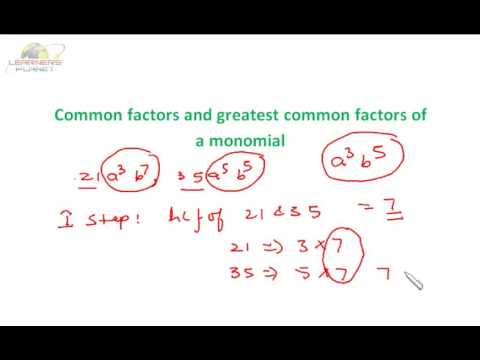 LEARNERS PLANET
Common factors and greatest common factors of
a monomial
21 a³ b⁷, 35 a⁵ b⁵ a³ b⁵
I step: hcf of 21 & 35 = 7
21 ⇒ 3 × 7
35 ⇒ 5 × 7 7